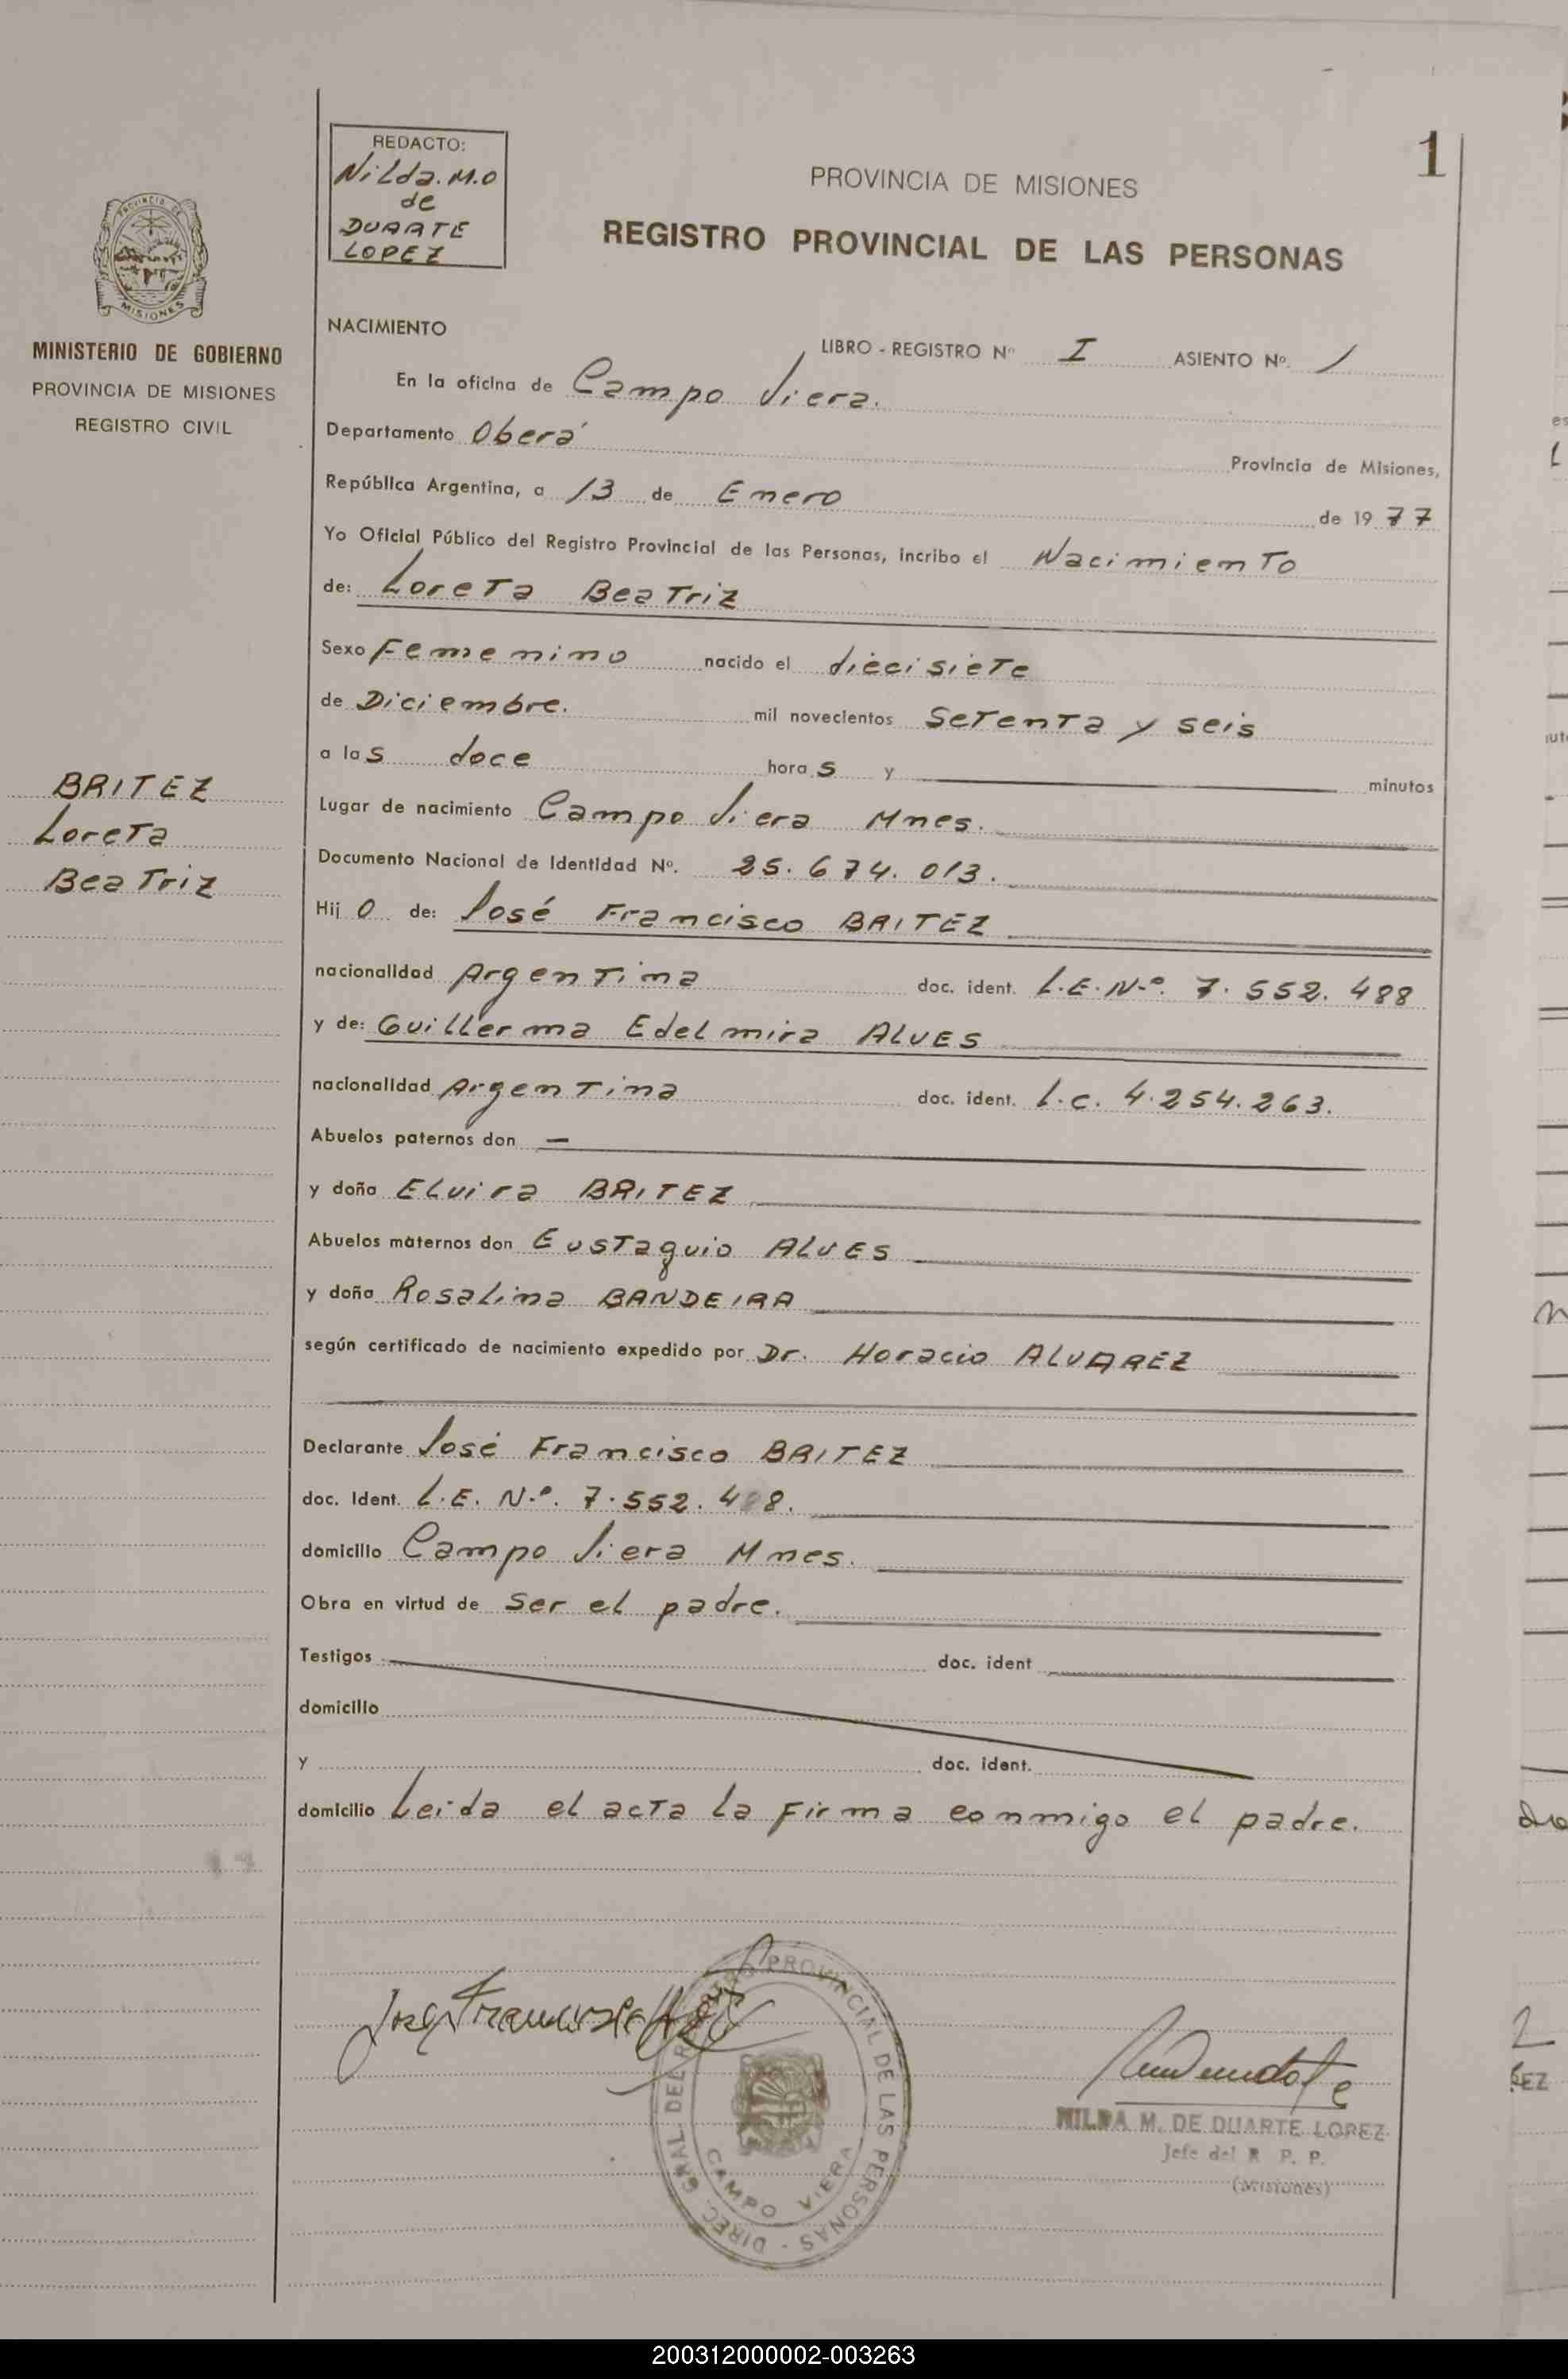 REDACTO:
Nilda. M.O
de
DUARTE
LOPEZ
1
PROVINCIA DE MISIONES
REGISTRO PROVINCIAL DE LAS PERSONAS
PROVINCIA DE
MISIONES
MINISTERIO DE GOBIERNO
PROVINCIA DE MISIONES
REGISTRO CIVIL
NACIMIENTO
LIBRO - REGISTRO Nº I ASIENTO Nº. 1
En la oficina de Campo Viera.
Departamento Oberá Provincia de Misiones,
República Argentina, a 13 de Enero de 1977
Yo Oficial Público del Registro Provincial de las Personas, incribo el Nacimiento
de: Loreta Beatriz
Sexo Femenino nacido el diecisiete
de Diciembre. mil novecientos setenta y seis
a las doce horas y minutos
BRITEZ
Loreta
Beatriz
Lugar de nacimiento Campo Viera Mnes.
Documento Nacional de Identidad Nº. 25.674.013.
Hijo de: José Francisco BRITEZ
nacionalidad Argentina doc. ident. L.E.Nº. 7.552.488
y de: Guillerma Edelmira ALVES
nacionalidad Argentina doc. ident. L.C. 4.254.263.
Abuelos paternos don —
y doña Elvira BRITEZ
Abuelos maternos don Eustaquio ALVES
y doña Rosalina BANDEIRA
según certificado de nacimiento expedido por Dr. Horacio ALVAREZ
Declarante José Francisco BRITEZ
doc. Ident. L.E. Nº. 7.552.488.
domicilio Campo Viera Mnes.
Obra en virtud de ser el padre.
Testigos doc. ident
domicilio
y doc. ident.
domicilio Leida el acta la firma conmigo el padre.
DIREC. GRAL. DEL REGISTRO PROVINCIAL DE LAS PERSONAS -
CAMPO VIERA
NILDA M. DE DUARTE LOPEZ
Jefe del R. P. P.
(Misiones)
200312000002-003263